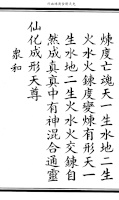 煉度亡魂天一生水地二生
火水火鍊度變煉有形天一
生水地二生火水火交鍊自
然成真真中有神混合通靈
仙化成形天尊
衆和